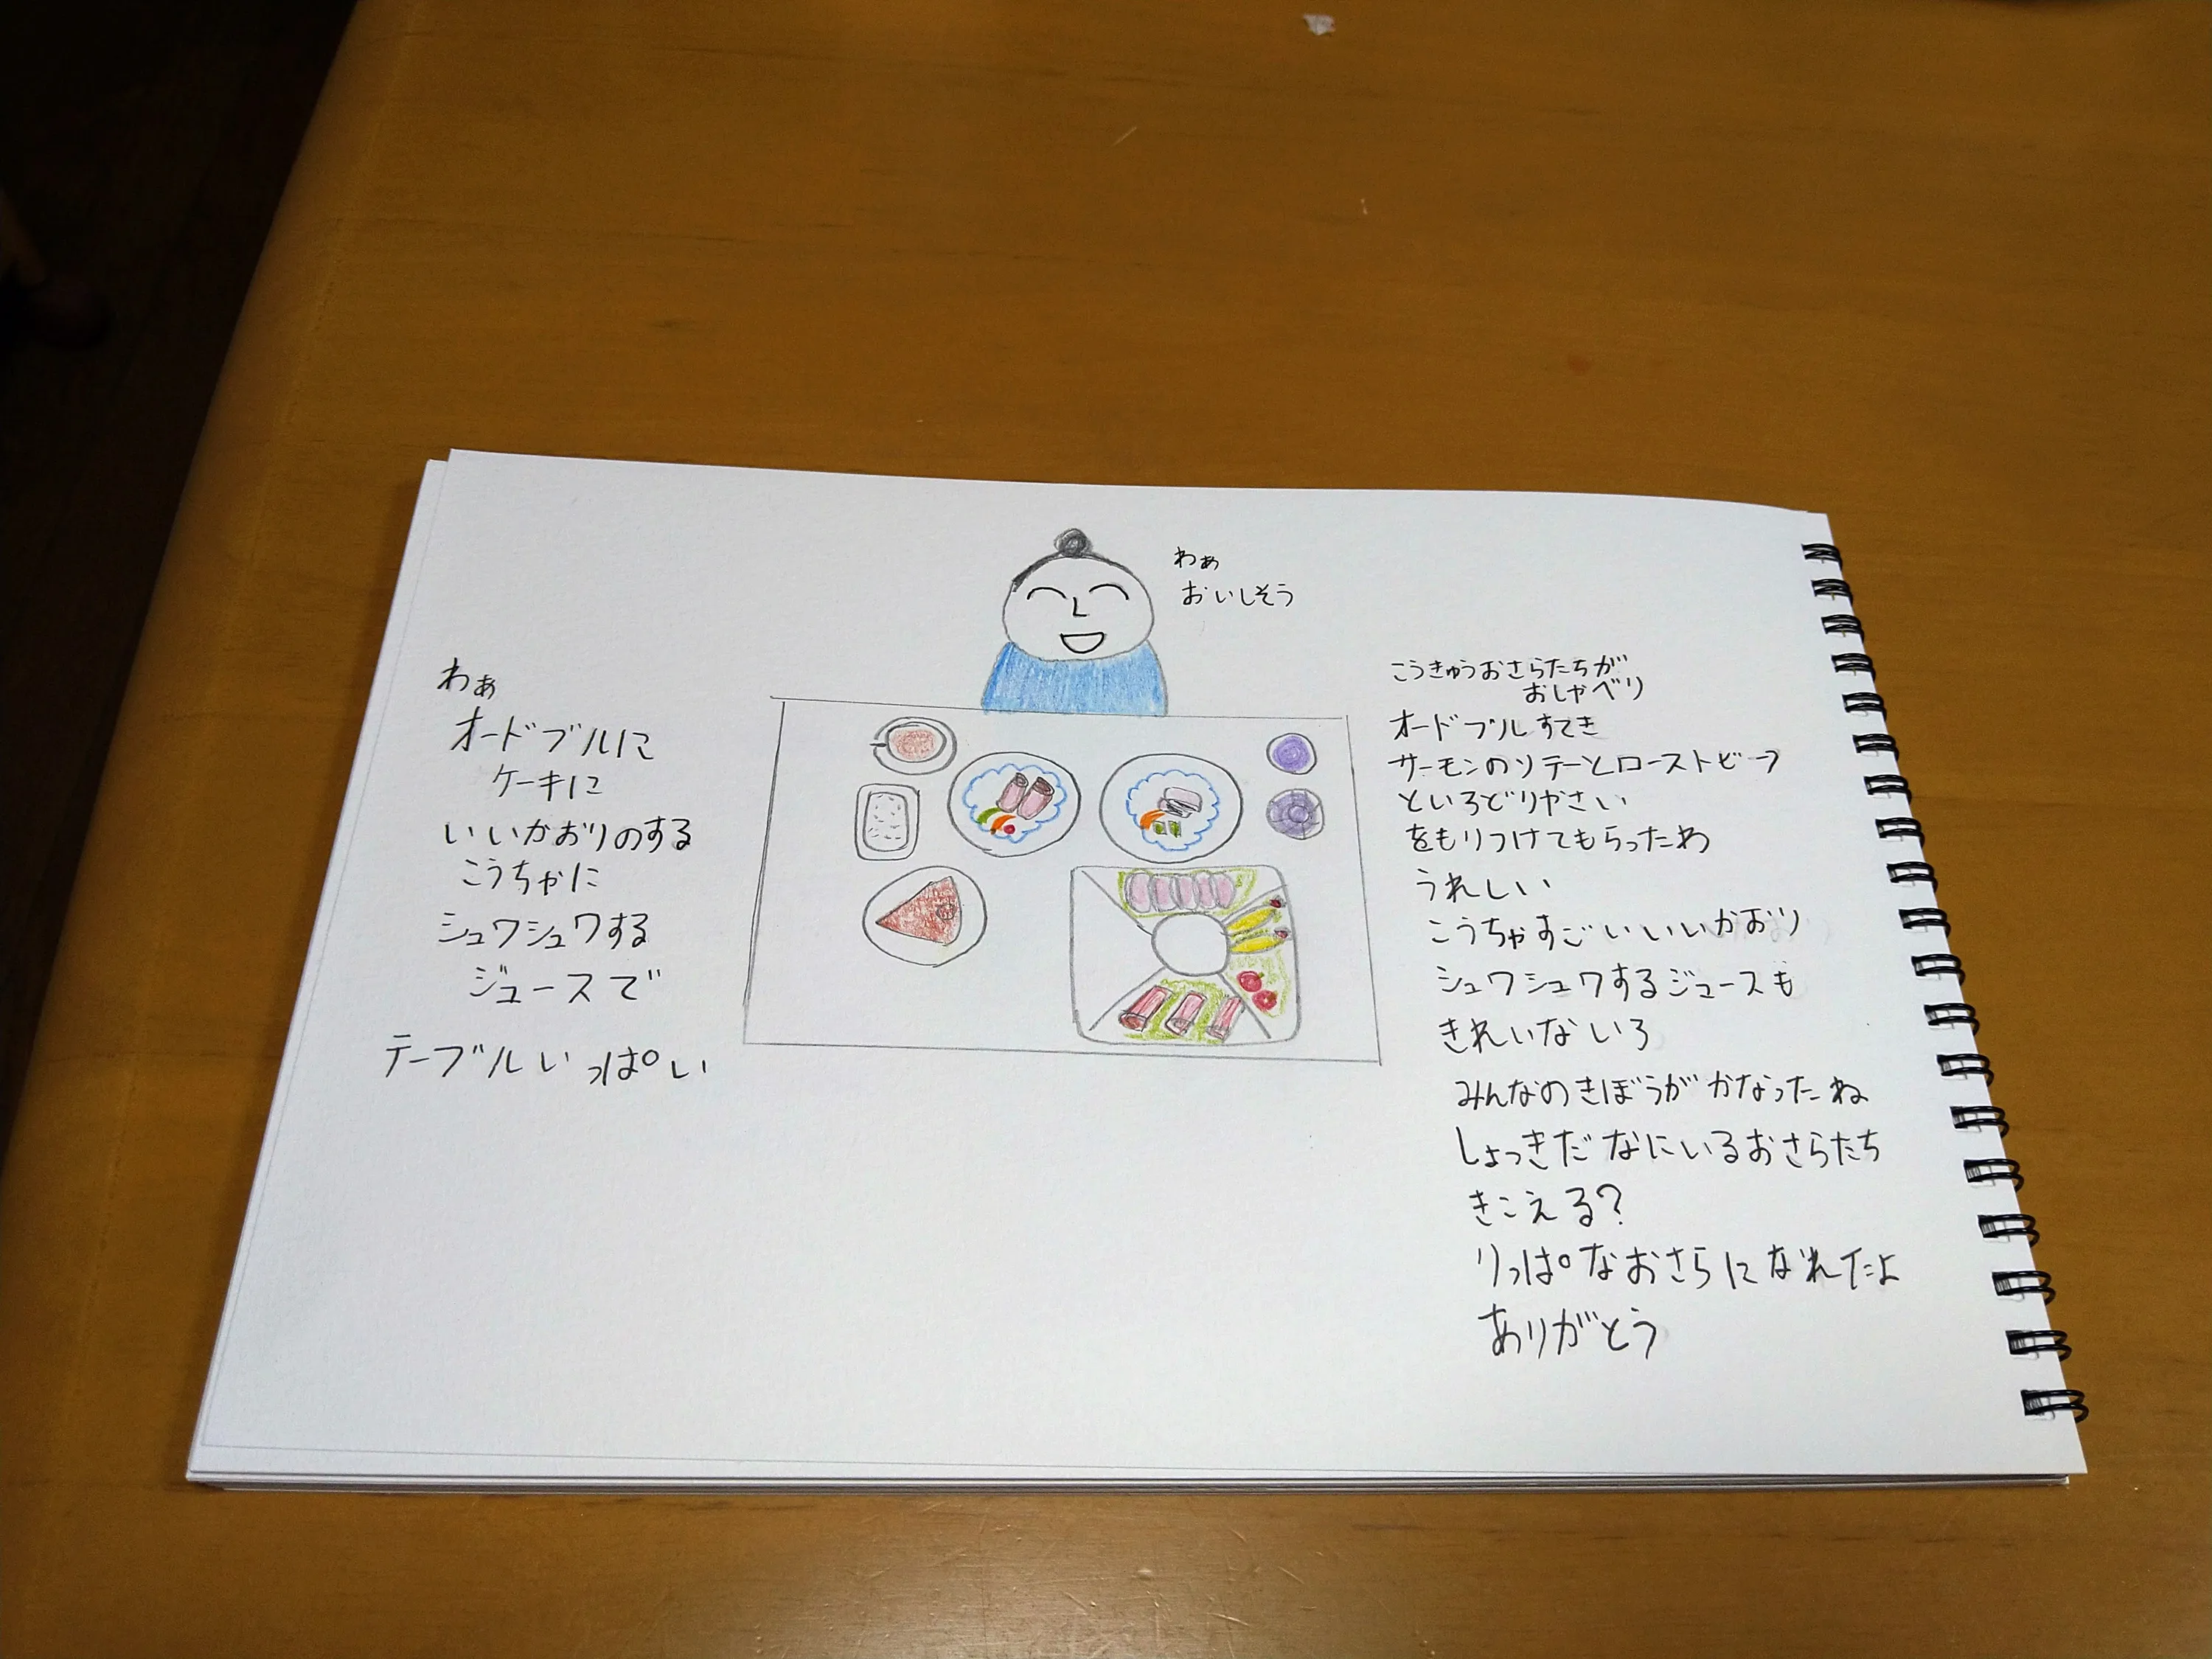 わぁ
おいしそう
わぁ
オードブルに
ケーキに
いいかおりのする
こうちゃに
シュワシュワする
ジュースで
テーブルいっぱい
こうきゅうおさらたちが
おしゃべり
オードブルすてき
サーモンのソテーとローストビーフ
といろどりやさい
をもりつけてもらったわ
うれしい
こうちゃすごいいいかおり
シュワシュワするジュースも
きれいないろ
みんなのきぼうがかなったね
しょっきだなにいるおさらたち
きこえる?
りっぱなおさらになれたよ
ありがとう